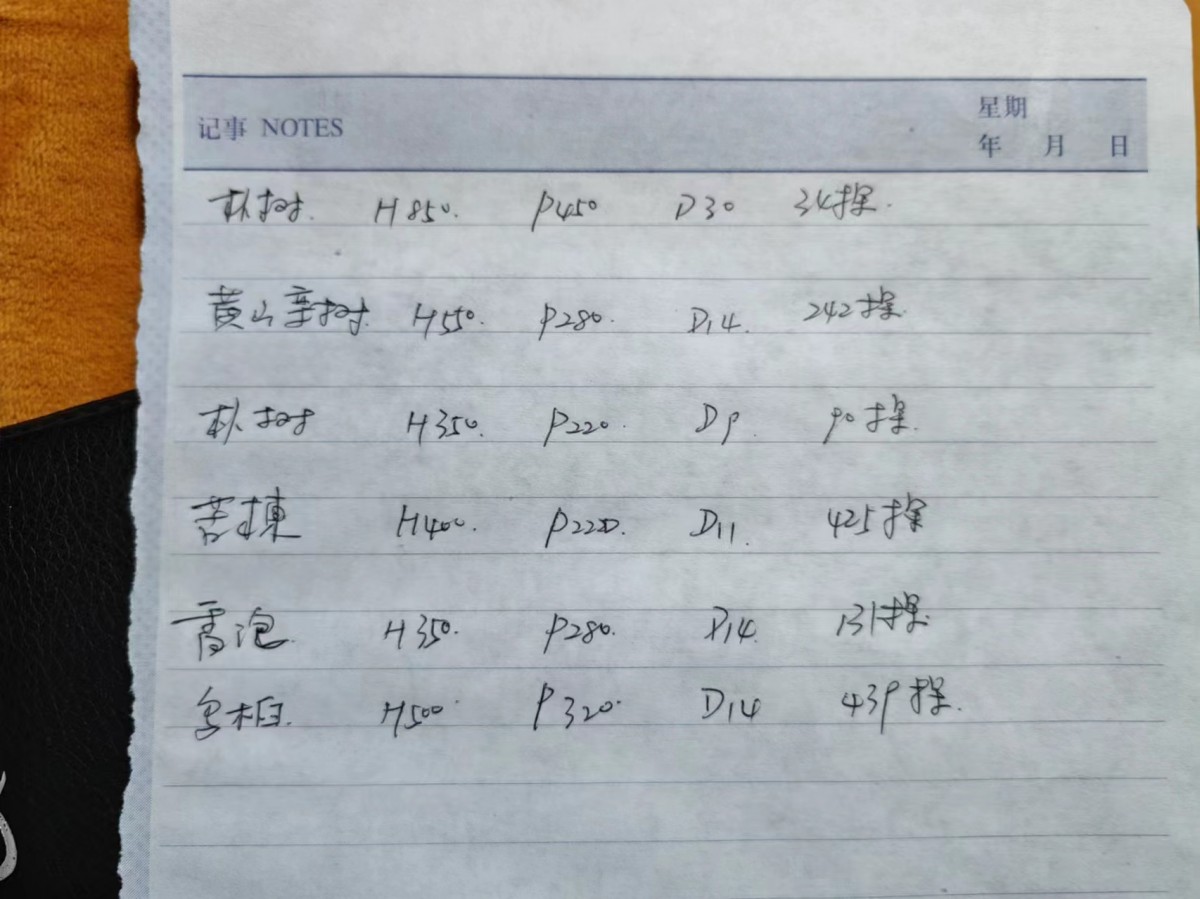 记事 NOTES 星期
年 月 日
朴树. H850. P450 D30 34棵.
黄山栾树. H550. P280. D14. 242棵.
朴树 H350. P220. D9. 90棵.
苦楝 H400. P220. D11. 425棵
香泡. H350. P280. D14. 131棵.
乌桕. H500. P320. D14 439棵.